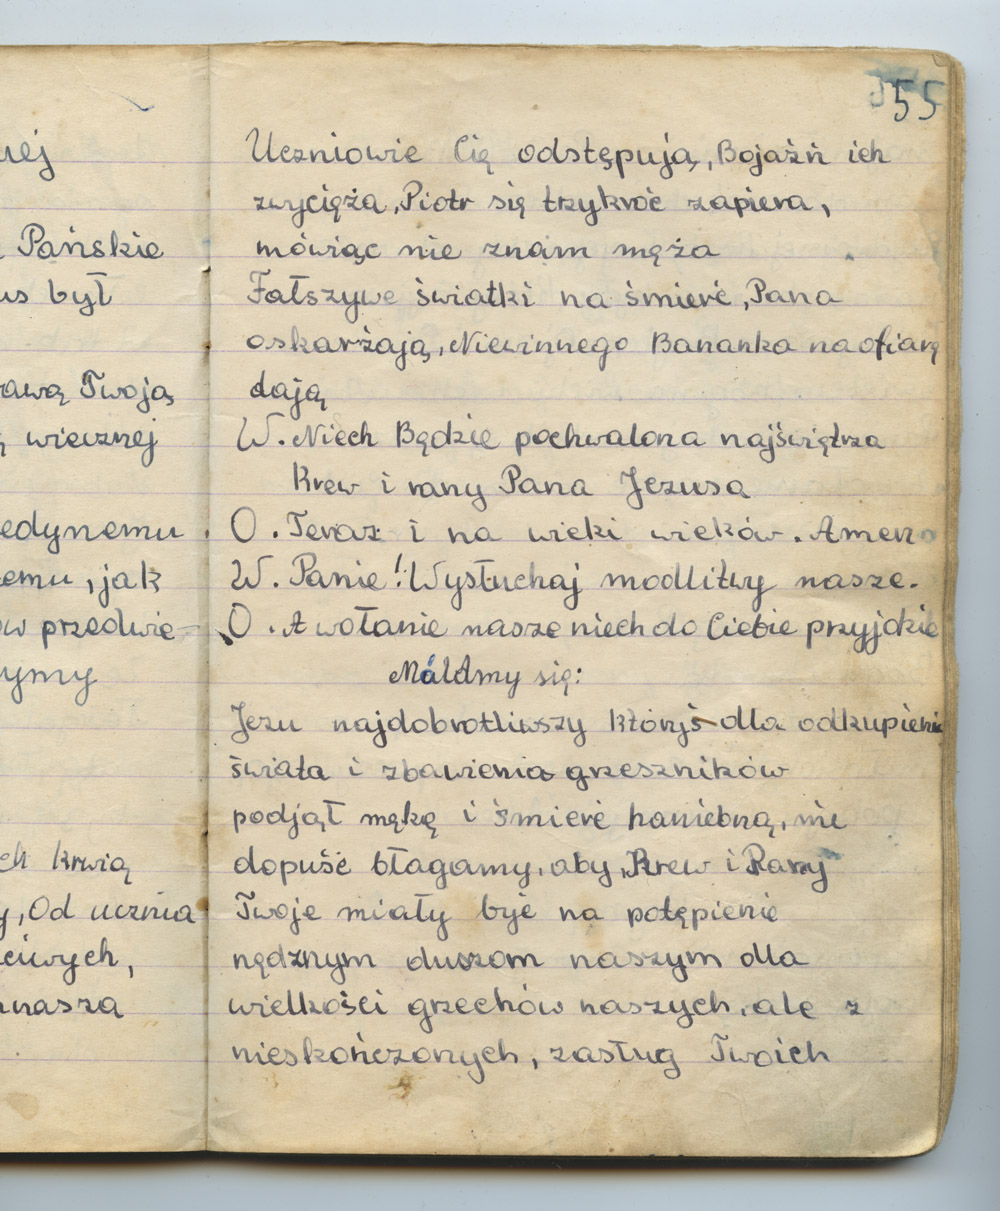 55
Uczniowie Cię odstępują, Bojaźń ich
zwycięża, Piotr się trzykroć zapiera,
mówiąc nie znam męża
Fałszywe światki na śmierć, Pana
oskarżają, Niewinnego Bananka na ofiarę
dają
W. Niech Będzie pochwalona najświętrza
Krew i rany Pana Jezusa
O. Teraz i na wieki wieków. Amen.
W. Panie! Wysłuchaj modlitwy nasze.
O. A wołanie nasze niech do Ciebie przyjdzie
Módlmy się:
Jezu najdobrotliwszy któryś dla odkupienia
świata i zbawienia grzeszników
podjął mękę i śmierć haniebną, nie
dopuść błagamy, aby Krew i Rany
Twoje miały być na potępienie
nędznym duszom naszym dla
wielkości grzechów naszych, ale z
nieskończonych, zasług Twoich
Pańskie
us był
Twoją
wiecznej
edynemu
emu, jak
ów przedwie-
ymy
ch krwią
y, Od ucznia
ciwych,
nasza